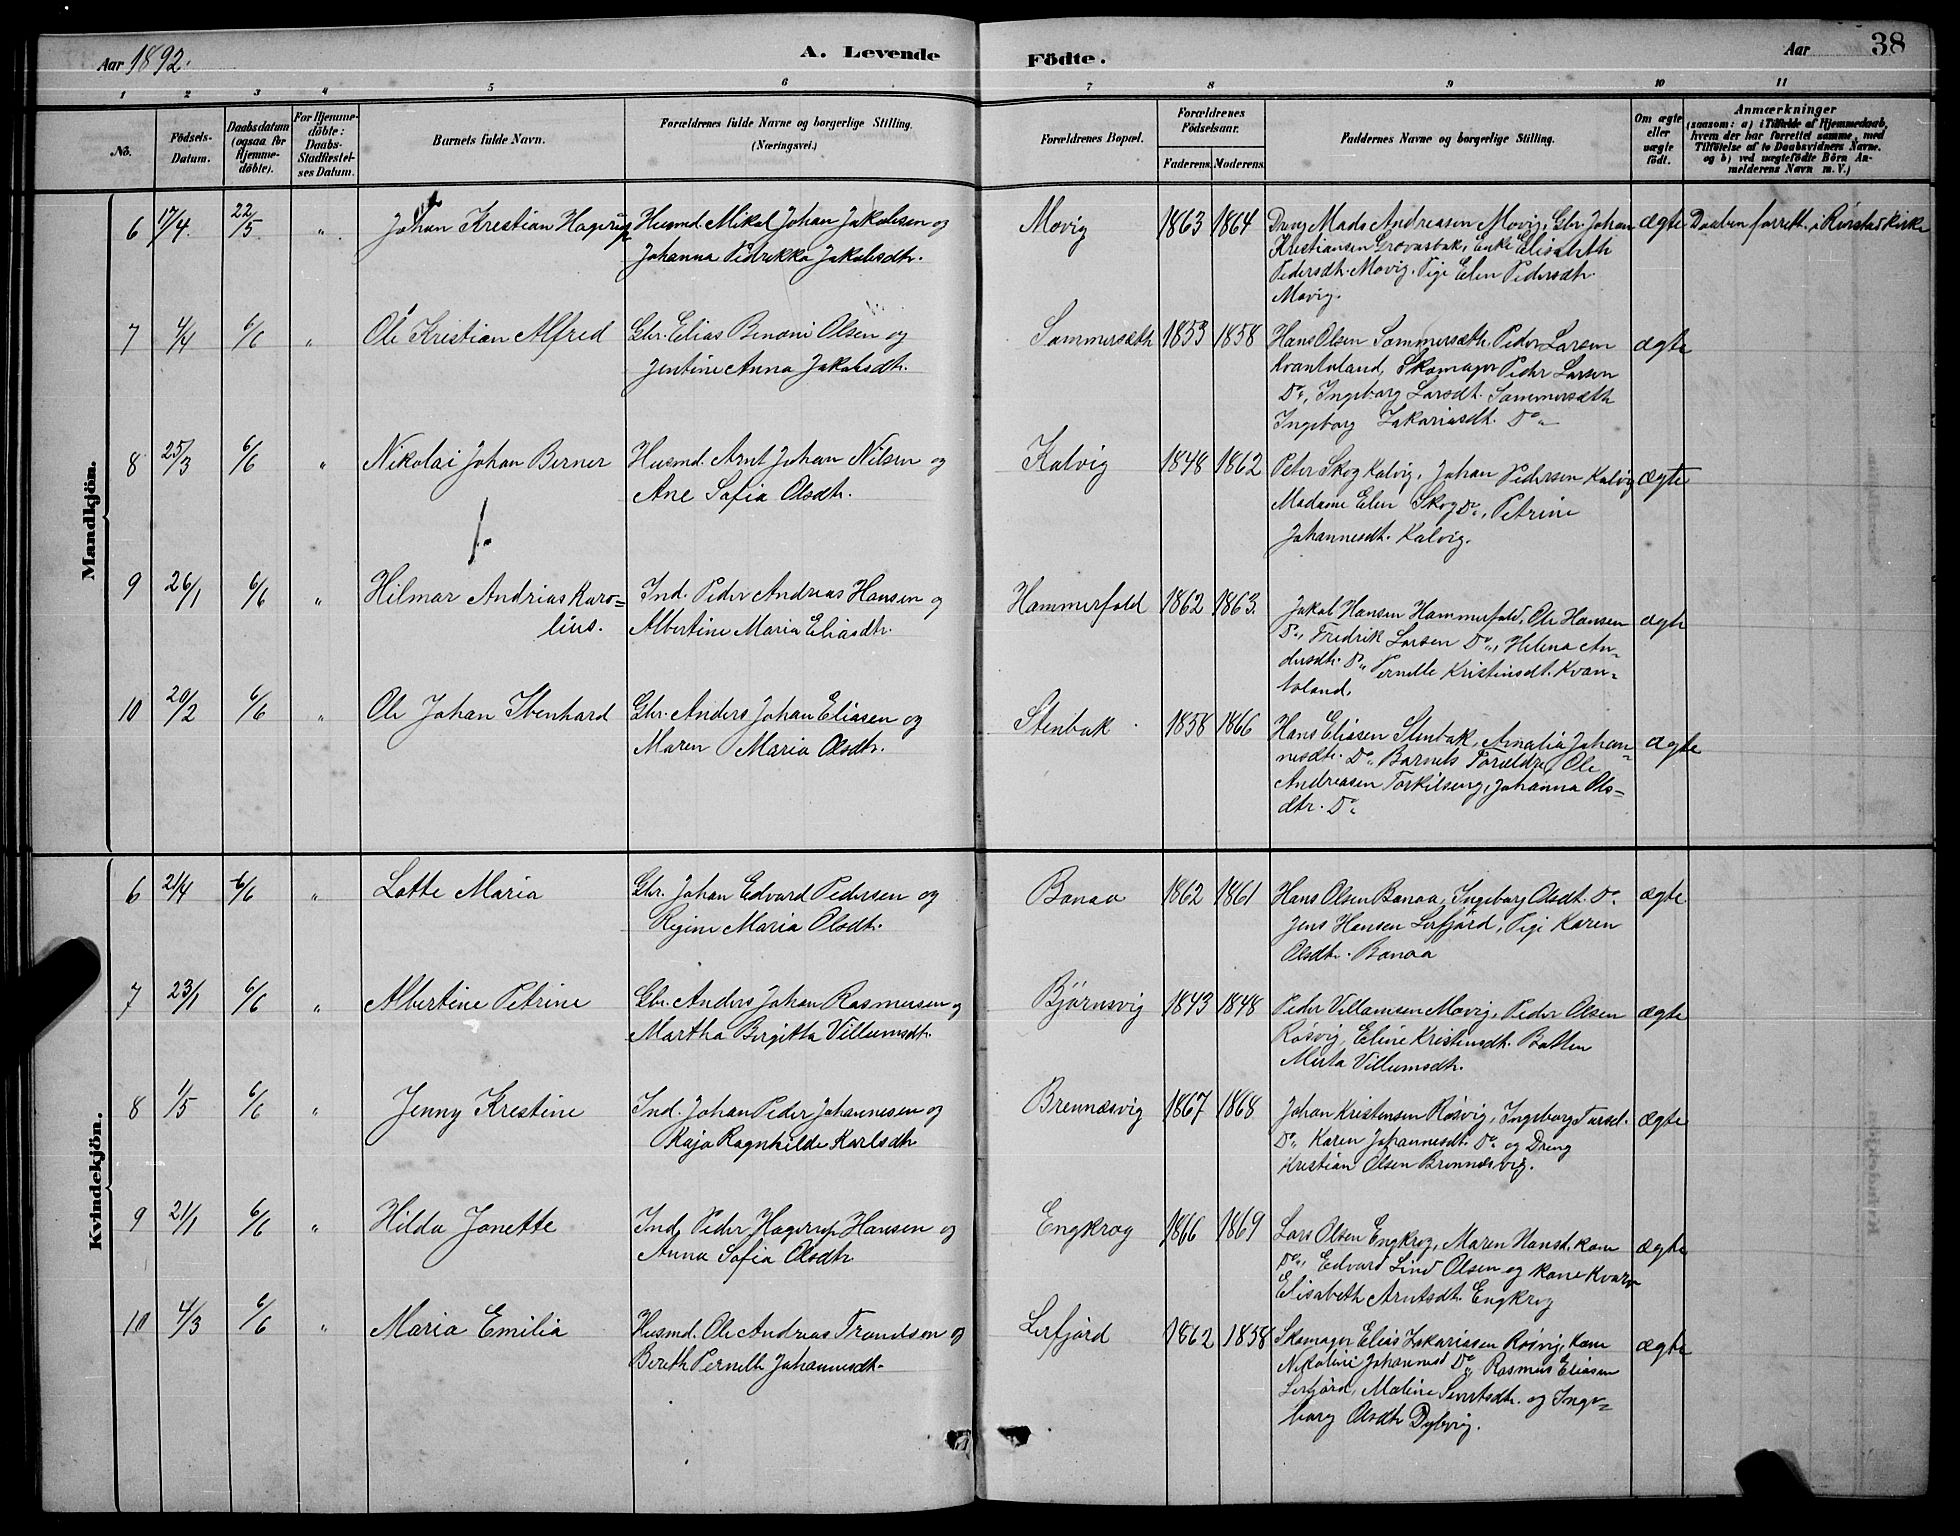 Aar 1892.
A. Levende
Födte.
Aar
38
1 2 3 4 5 6 7 8 9 10 11
No.
Födsels-
Datum.
Daabsdatum
(ogsaa for
Hjemme-
döbte).
For Hjemme-
döbte:
Daabs-
Stadfæstel-
ses Datum.
Barnets fulde Navn.
Forældrenes fulde Navne og borgerlige Stilling.
(Næringsvei.)
Forældrenes Bopæl.
Forældrenes
Födselsaar.
Faderens. Moderens.
Faddernes Navne og borgerlige Stilling.
Om ægte
eller
uægte
födt.
Anmærkninger
(saasom: a) i Tilfælde af Hjemmedaab,
hvem der har forrettet samme, med
Tilföielse af to Daabsvidners Navne.
og b) ved uægtefödte Börn An-
melderens Navn m. V.)
Mandkjön.
6 17/4. 22/5 " Johan Krestian Hagerup Husmd. Mikal Johan Jakobsen og
Johanna Pedrikka Jakobsdtr.
Movig 1863 1864
Dreng Mads Andreasen Movig, Gbr. Johan
Kristiansen Enke Elisabeth
Pedersdtr. Movig. Pige Elen Pedersdtr.
Movig.
ægte Daaben forrett. i Rørstad Kirke
7 4/4 6/6 " Ole Kristian Alfred Gbr. Elias Benoni Olsen og
Jentine Anna Jakobsdtr.
Sommersæth 1853 1858
Hans Olsen Sommersæth. Peder Larsen
Kvantoland, Skomager Peder Larsen
Do, Ingeborg Larsdt. Sommersæth
Ingeborg Zakariasdt. Do
ægte
8 25/3 6/6 " Nikolai Johan Berner Husmd. Arnt Johan Nilsen og
Ane Sofia Olsdtr.
Kalvig 1848 1862
Peter Skog Kalvig, Johan Pedersen Kalvig
Madame Elen Skog Do, Petrine
Johannesdt. Kalvig.
ægte
9 26/1 6/6 " Hilmar Andrias Karo=
lius.
Ind. Peder Andreas Hansen og
Albertine Maria Eliasdtr.
Hammerfald 1862 1863.
Jakob Hansen Hammerfald, Ole Hansen
Do, Fredrik Larsen Do, Helena An-
dersdtr. Do Pernelle Kristensdt. Kvan-
toland.
ægte
10 20/2 6/6 " Ole Johan Ibenhard Gbr. Anders Johan Eliasen og
Maren Maria Olsdtr.
Stenbak 1858 1866
Hans Eliasen Stenbak, Amalia Johan=
nesdtr. Do Barnets Forældre, Ole
Andreasen Torkilseng, Johanna Ols=
dtr. Do
ægte
Kvindekjön.
6 21/4 6/6 " Lotte Maria Gbr. Johan Edvard Pedersen og
Regine Maria Olsdtr.
Bonaa 1862 1861
Hans Olsen Bonaa, Ingeborg Olsdt. Do
Jens Hansen Lerfjord, Pige Karen
Olsdtr. Bonaa
ægte
7 23/1 6/6 " Albertine Petrine Gbr. Anders Johan Rasmusen og
Martha Birgitta Villumsdtr.
Bjørnsvig 1843 1848
Peder Villamsen Movig, Peder Olsen
Røsvig, Eline Kristensdt. Botten
Merta Villumsdtr.
ægte
8 1/5 6/6 " Jenny Krestine Ind. Johan Peder Johannesen og
Kaja Ragnhilde Karlsdtr
Brennæsvig 1867 1868
Johan Kristensen Røsvig, Ingeborg
Do, Karen Johannesdt. Do og Dreng
Kristian Olsen Brennæsvig.
ægte
9 21/1 6/6 " Hilda Jonette Ind. Peder Hagerup Hansen og
Anna Sofia Olsdtr
Engkrog 1866 1869
Lars Olsen Engkrog, Maren Hansd. kone
Do, Edvard Lind Olsen og kone
Elisabeth Arntsdt. Engkrog
ægte
10 4/3 6/6 " Maria Emilia Husmd. Ole Andreas Trondsen og
Bereth Pernelle Johannesdtr.
Lerfjord 1862 1858
Skomager Elias Zakariasen Røsvig, kone
Nikoline Johannesd Do, Rasmus Eliasen
Lerfjord, Maline Sivertsdtr. og Inge=
borg Olsdtr Dybvig.
ægte